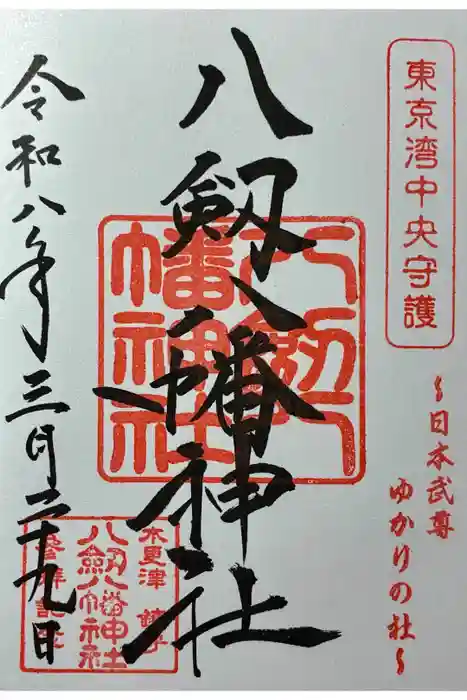 東京湾中央守護
~日本武尊
ゆかりの社~
八剱八幡神社
八剱八幡神社
令和八年三月二十九日
木更津 鎮守
八劔八幡神社
参拝記念